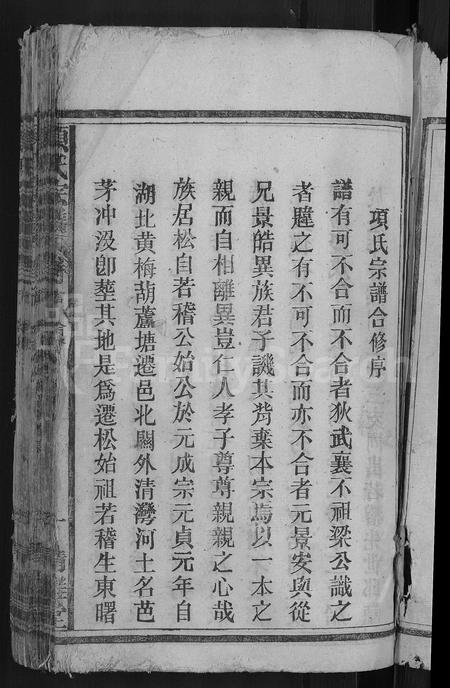 項氏宗譜合修序
譜有可不合而不合者狄武襄不祖梁公識之
者韙之有不可不合而亦不合者元景安與從
兄景皓異族君子譏其背棄本宗焉以一本之
親而自相離異豈仁人孝子尊尊親親之心哉
族居松自若稽公始公於元成宗元貞元年自
湖北黄梅葫蘆塘遷邑北關外清灣河土名芭
茅冲没卽塟其地是爲遷松始祖若稽生東曙
項氏宗譜
FamilySearch